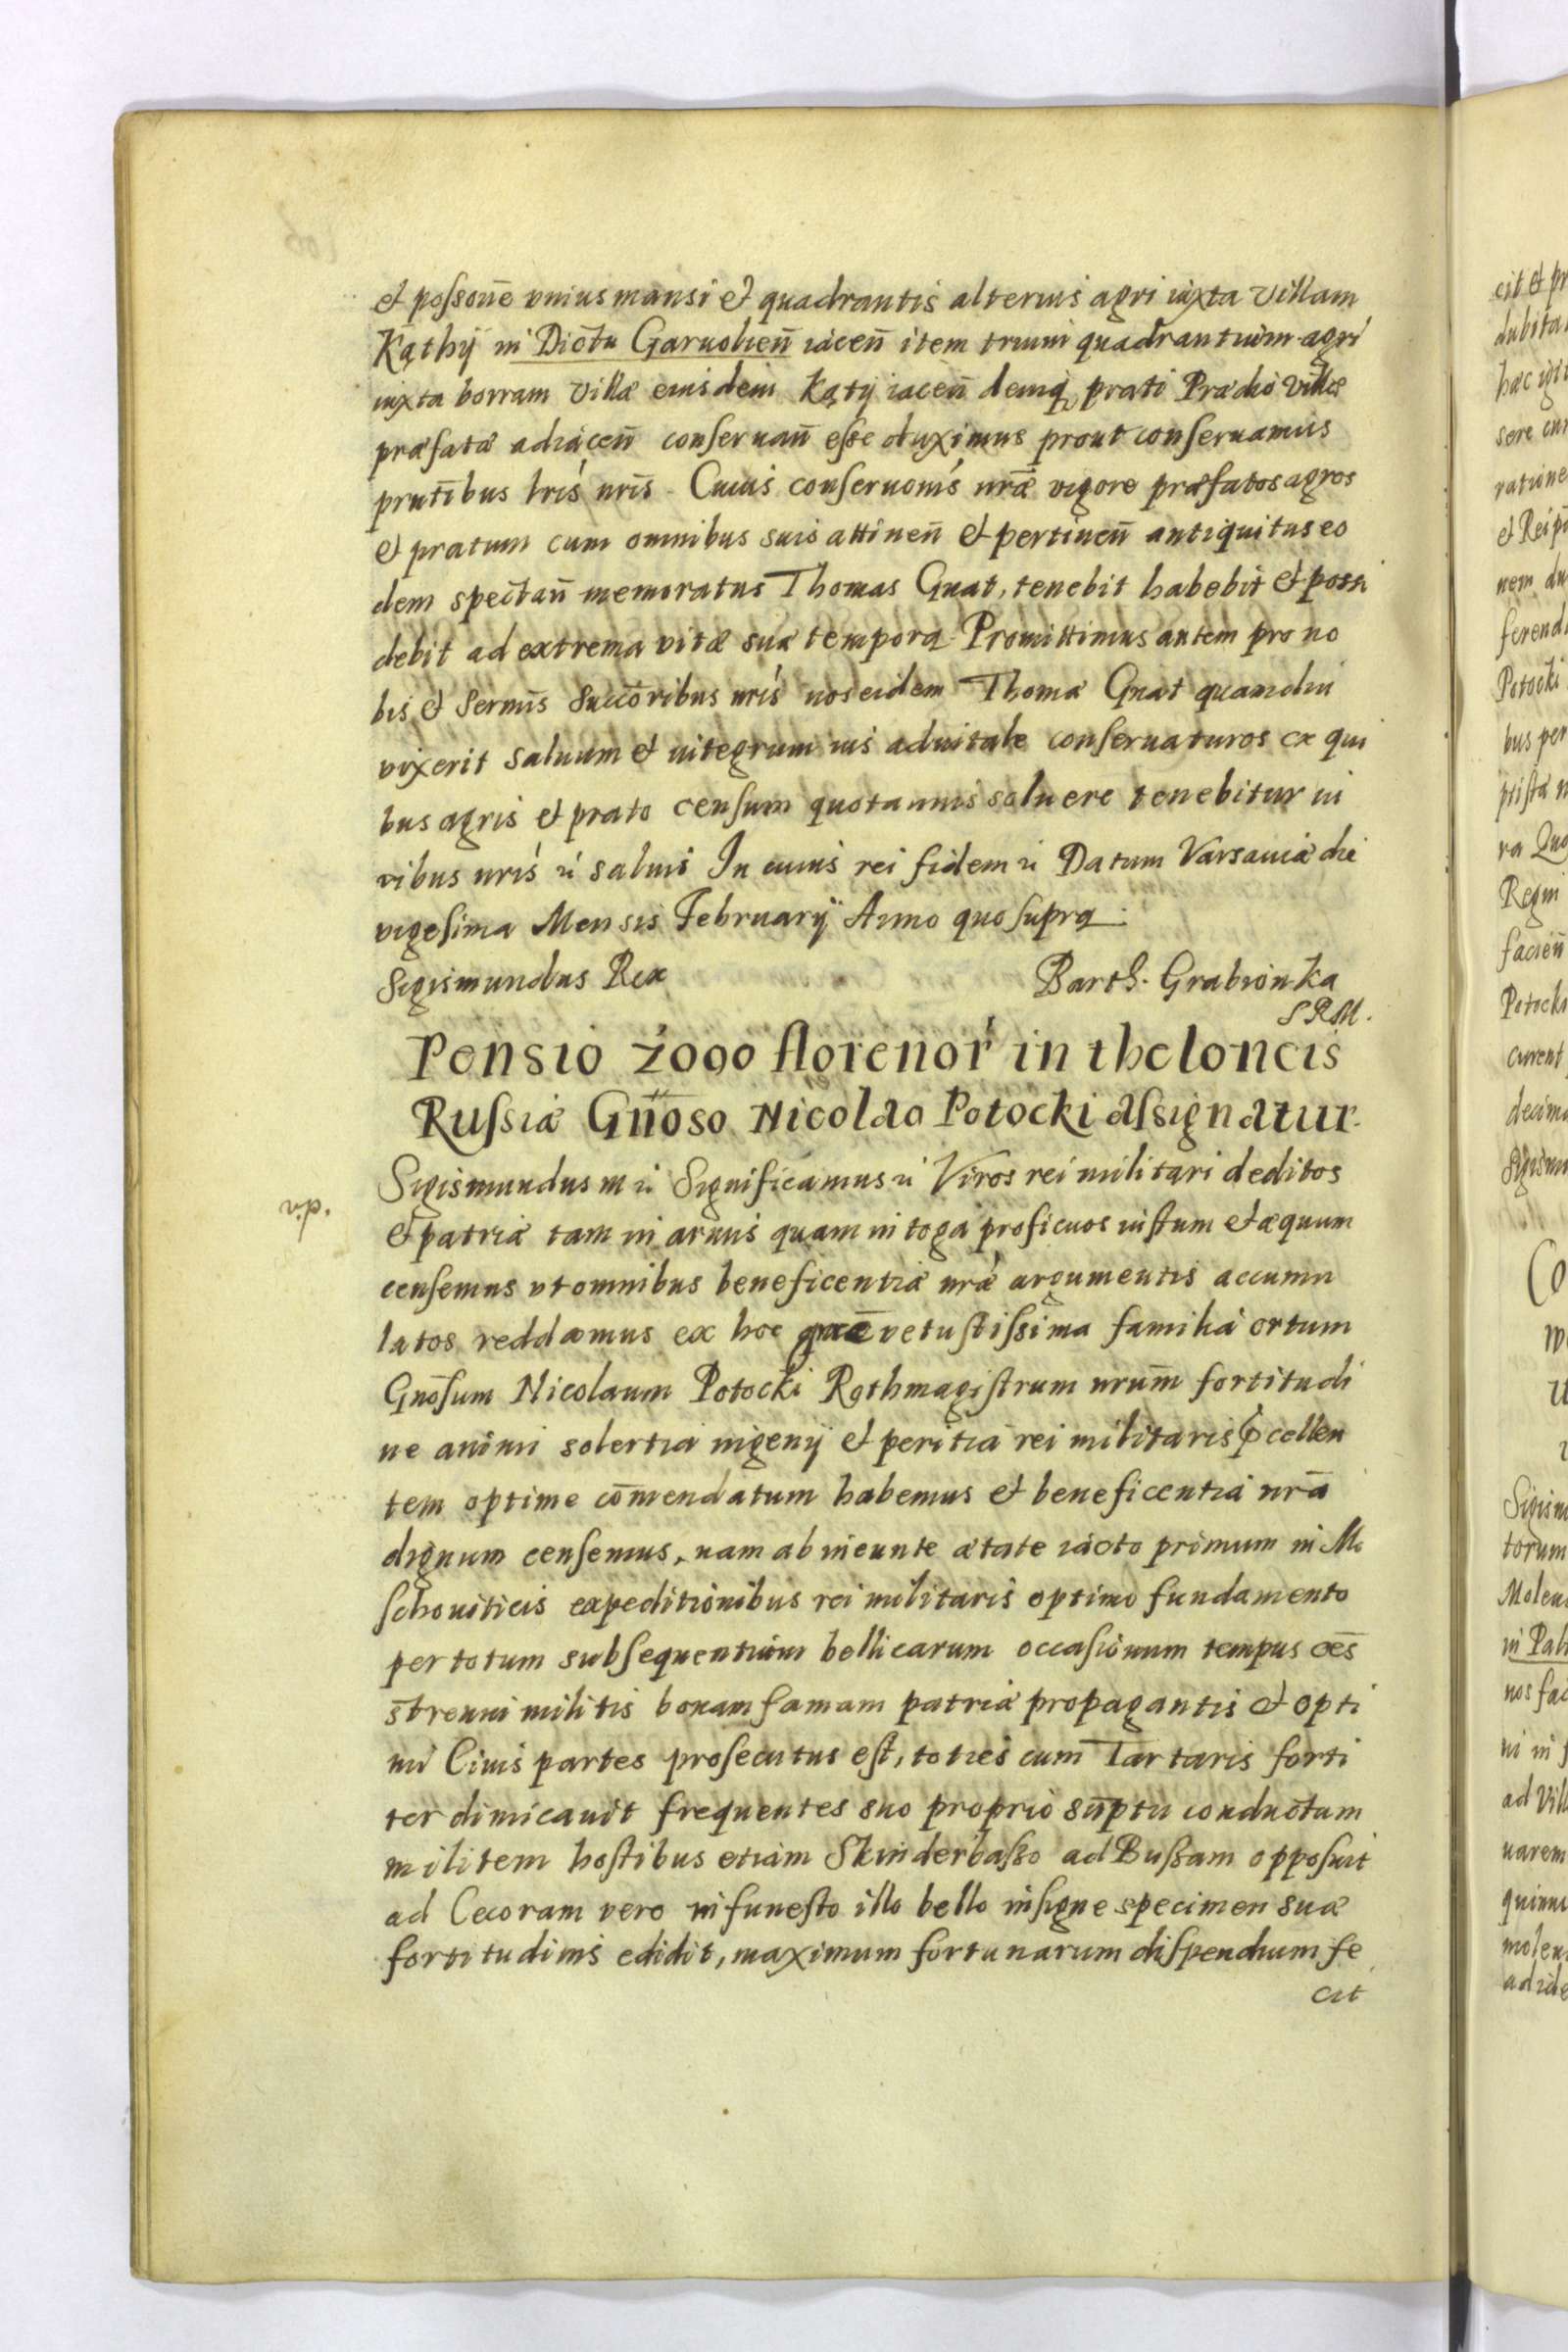 et possone̅ vnius mansi et quadrantis alterius agri iuxta villam
Kąthÿ in Dictu Garuolien̅ iacen̅ item trium quadrantuum agri
iuxta borram villæ eiusdem Kątÿ iacen̅ deniq prati Prædio villæ
præfatæ adiacen̅ conseruan̅ esse duximus prout conseruamus
prntibus lris nris. Cuius conseruonis nræ vigore præfatos agros
et pratum cum omnibus suis attinen̅ et pertinen̅ antiquitus eo
dem spectan̅ memoratus Thomas Gnat, tenebit habebit et possi
debit ad extrema vitæ suæ tempora. Promittimus autem pro no
bis et Sermis Succoribus nris nos eidem Thomæ Gnat quamdiu
vixerit saluum et integrum ius aduitale conseruaturos ex qui
bus agris et prato censum quotannis soluere tenebitur iu
ribus nris ꝛ saluis In cuius rei fidem ꝛ Datum Varsauiæ die
vigesima Mensis Februarÿ Anno quo supra.
Sigismundus Rex Barth. Grabionka
SRM.
Pensio 2000 florenor in theloneis
Russiæ Gnoso Nicolao Potocki assignatur.
Sigismundus III ꝛ Significamus ꝛ Viros rei militari deditos
et patriæ tam in armis quam in toga proficuos iustum et æquum
censemus vt omnibus beneficentiæ nræ argumentis accumu
latos reddamus ex hoc vetustissima familia ortum
Gnosum Nicolaum Potocki Rothmagistrum nrum fortitudi
ne animi solertia ingenÿ et peritia rei militaris p̱cellen
tem optime com̅endatum habemus et beneficentia nra
dignum censemus, nam ab ineunte ætate iacto primum in Mo
schouiticis expeditionibus rei militaris optimo fundamento
per totum subsequentium bellicarum occasionum tempus oe̅s
strenui militis bonam famam patriæ propagantis et opti
mi Ciuis partes prosecutus est, toties cum Tartaris forti
ter dimicauit frequentes suo proprio su̅ptu conductam
militem hostibus etiam Skinderbasso ad Bussam opposuit
ad Cecoram vero in funesto illo bello insigne specimen suæ
fortitudinis edidit, maximum fortunarum dispendium fe
cit